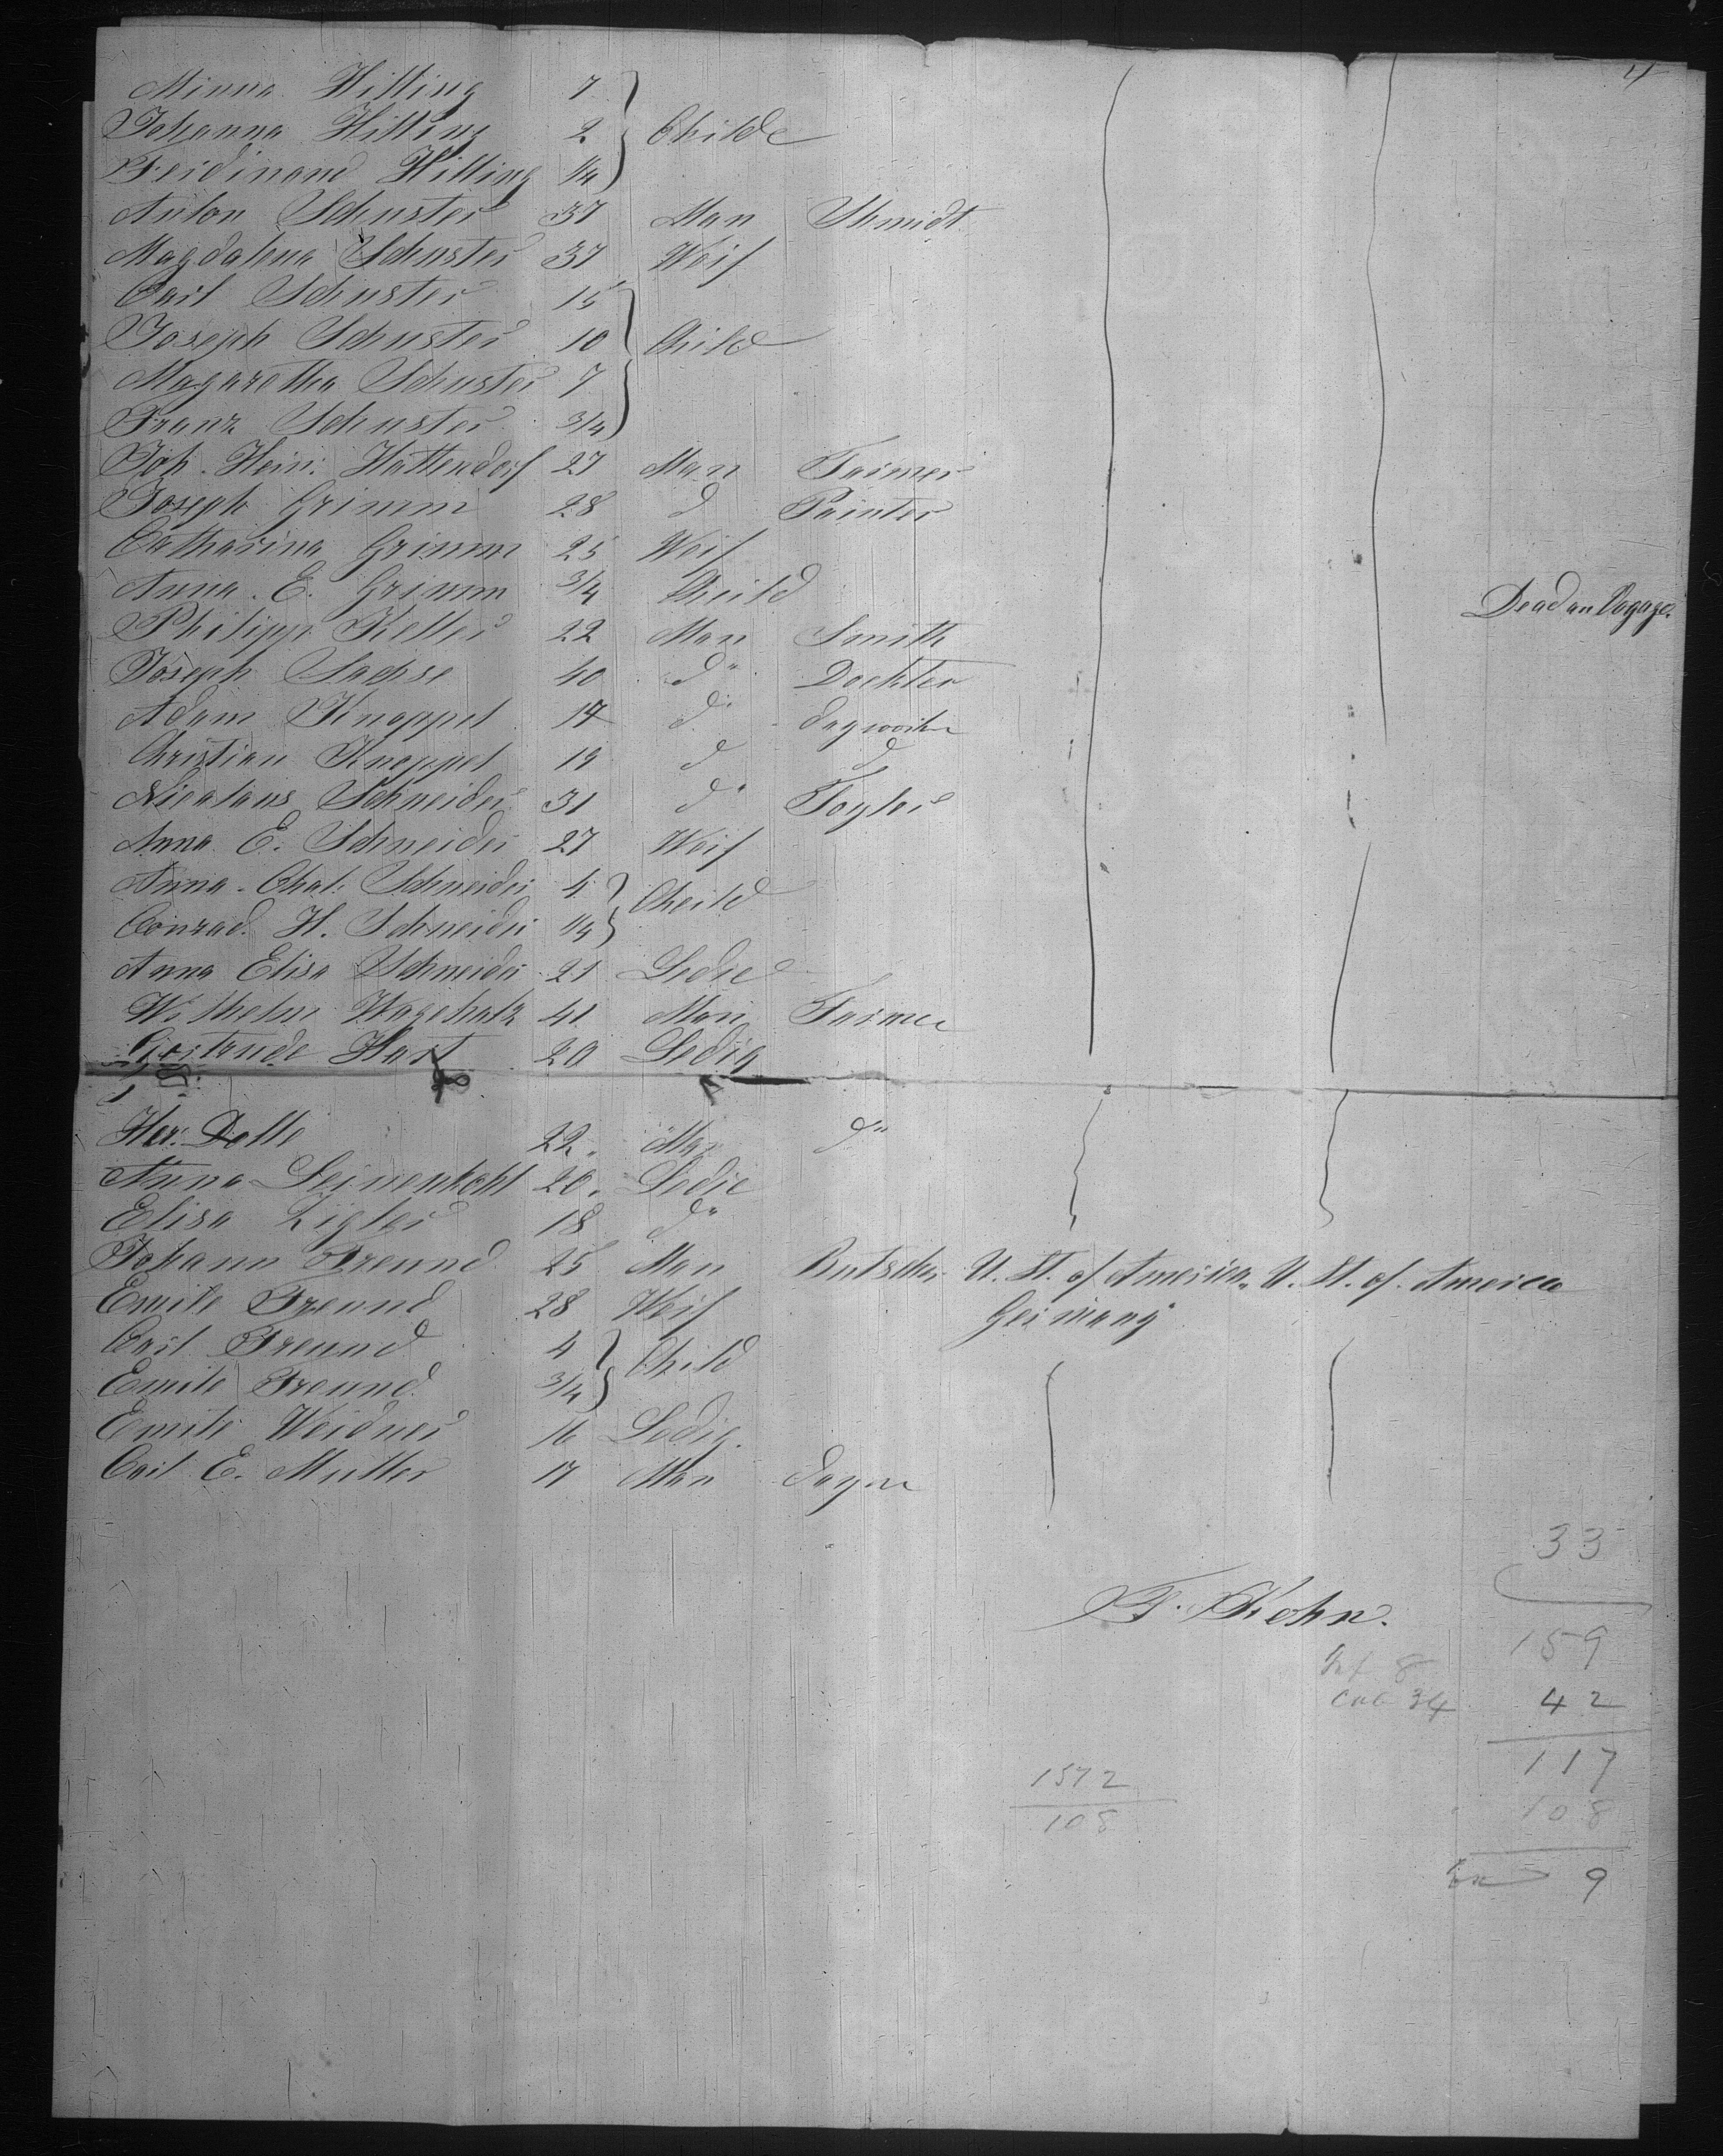 4
Minna Hilling 7
Johanna Hilling 2 Childe
Ferdinand Hilling 1/4
Anton Schuster 37 Man Shmidt
Magdalena Schuster 37 Weif
Carl Schuster 15
Joseph Schuster 10 Child
Magaretha Schuster 7
Franz Schuster 3/4
Joh. Hein: Hattendorf 27 Man Farmer
Joseph Grimm 28 d Painter
Catharina Grimm 25 Weif
Anna. E. Grimm 3/4 Cheild Dead an Vogage.
Philipp Keller 22 Man Smith
Joseph Sachse 40 d" Dockter
Adam Knoppel 17 d"
Christian Knoppel 19 d d
Nicolaus Schneider 31 d" Toyler
Anna E. Schneider 27 Weif
Anna. Chat: Schneider 4 Cheild
Conrad. H. Schneider 1/4
Anna Elisa Schneider 21 Ledie
Wilhelm 41 Man Farmer
Gertrude Hast 20 Ledig
Her: Dolle 22 Man d"
Anna 20 Ledie
Elisa Zigler 18 d"
Johann Freund 25 Man Butscher U. St. of America U. St. of. America
Emile Freund 28 Weif Germany
Carl Freund 4 Child
Emile Freund 3/4
Emile Weidner 16 Ledig.
Carl E. Muller 17 Man
33
F. Kohn.
159
Inf 8
34 42
117
1572
108 108
9